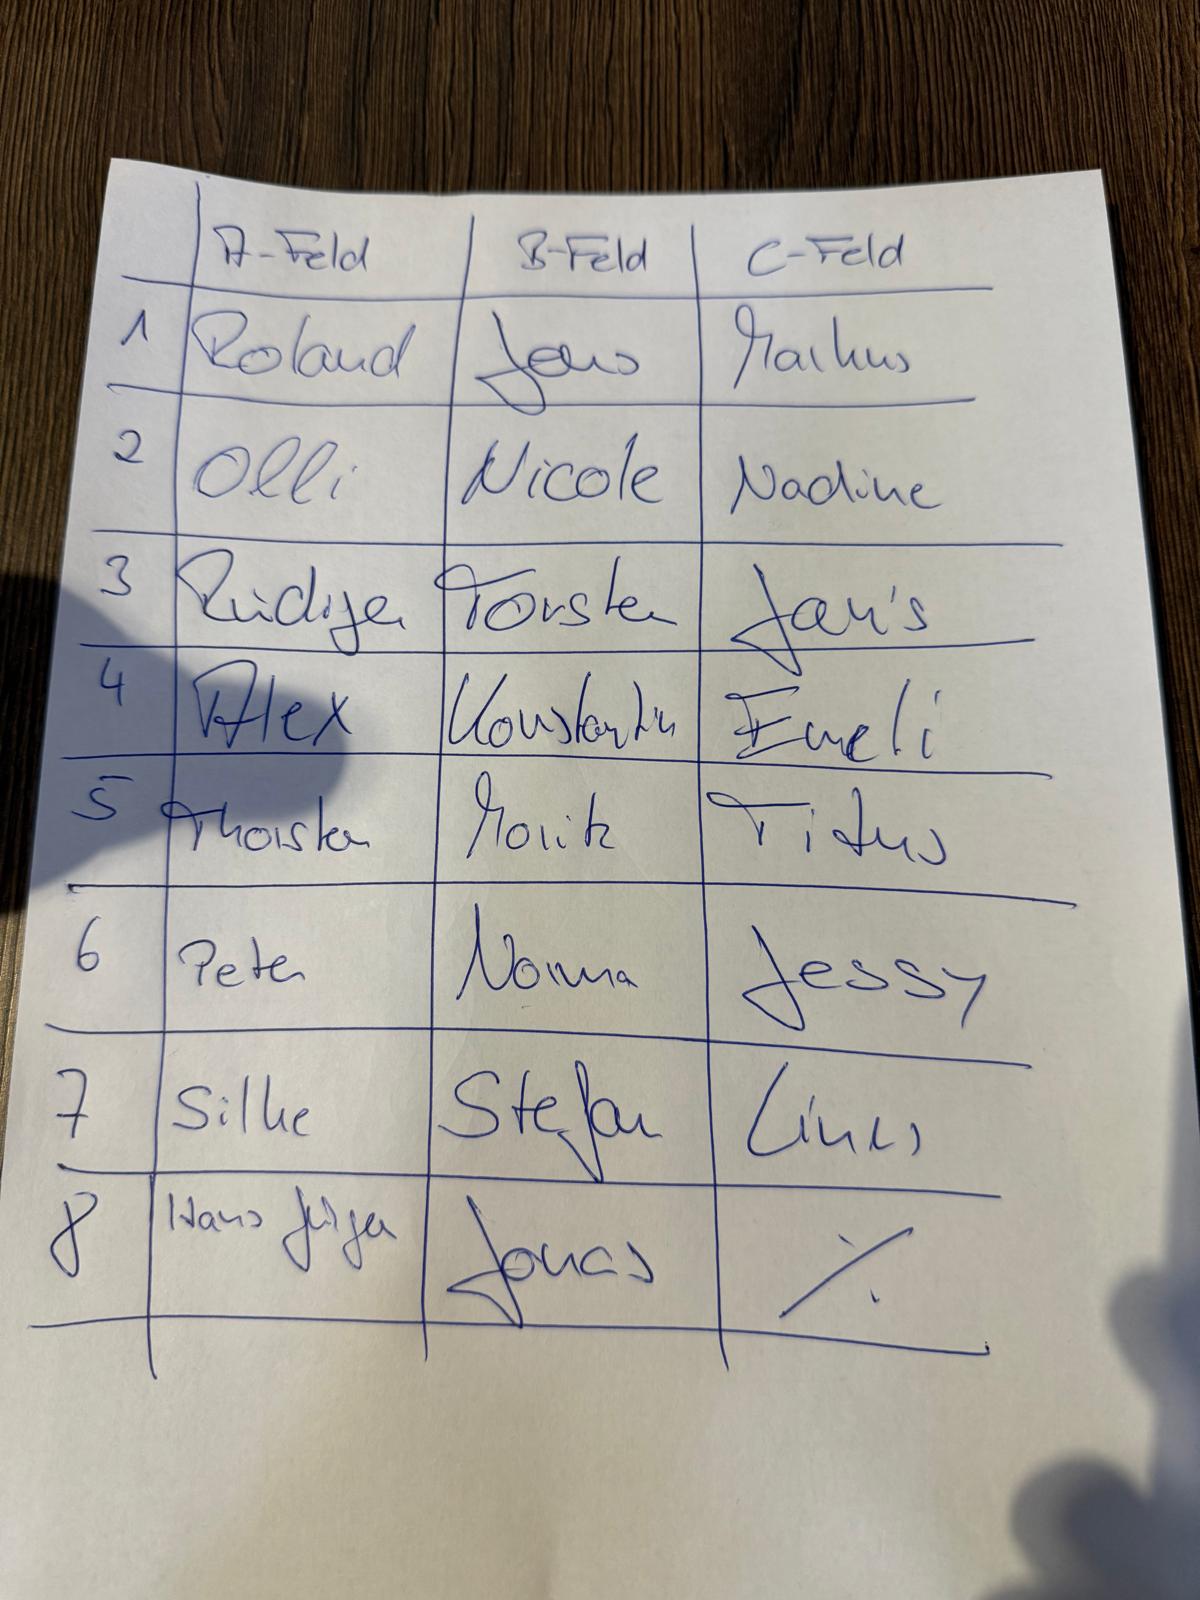 A-Feld B-Feld C-Feld
1 Roland Jens Markus
2 Olli Nicole Nadine
3 Rüdiger Torsten Janis
4 Alex Konstantin Emeli
5 Thorsten Moritz Titus
6 Peter Norma Jessy
7 Silke Stefan Linus
8 Hans Jürgen Jonas ⁒